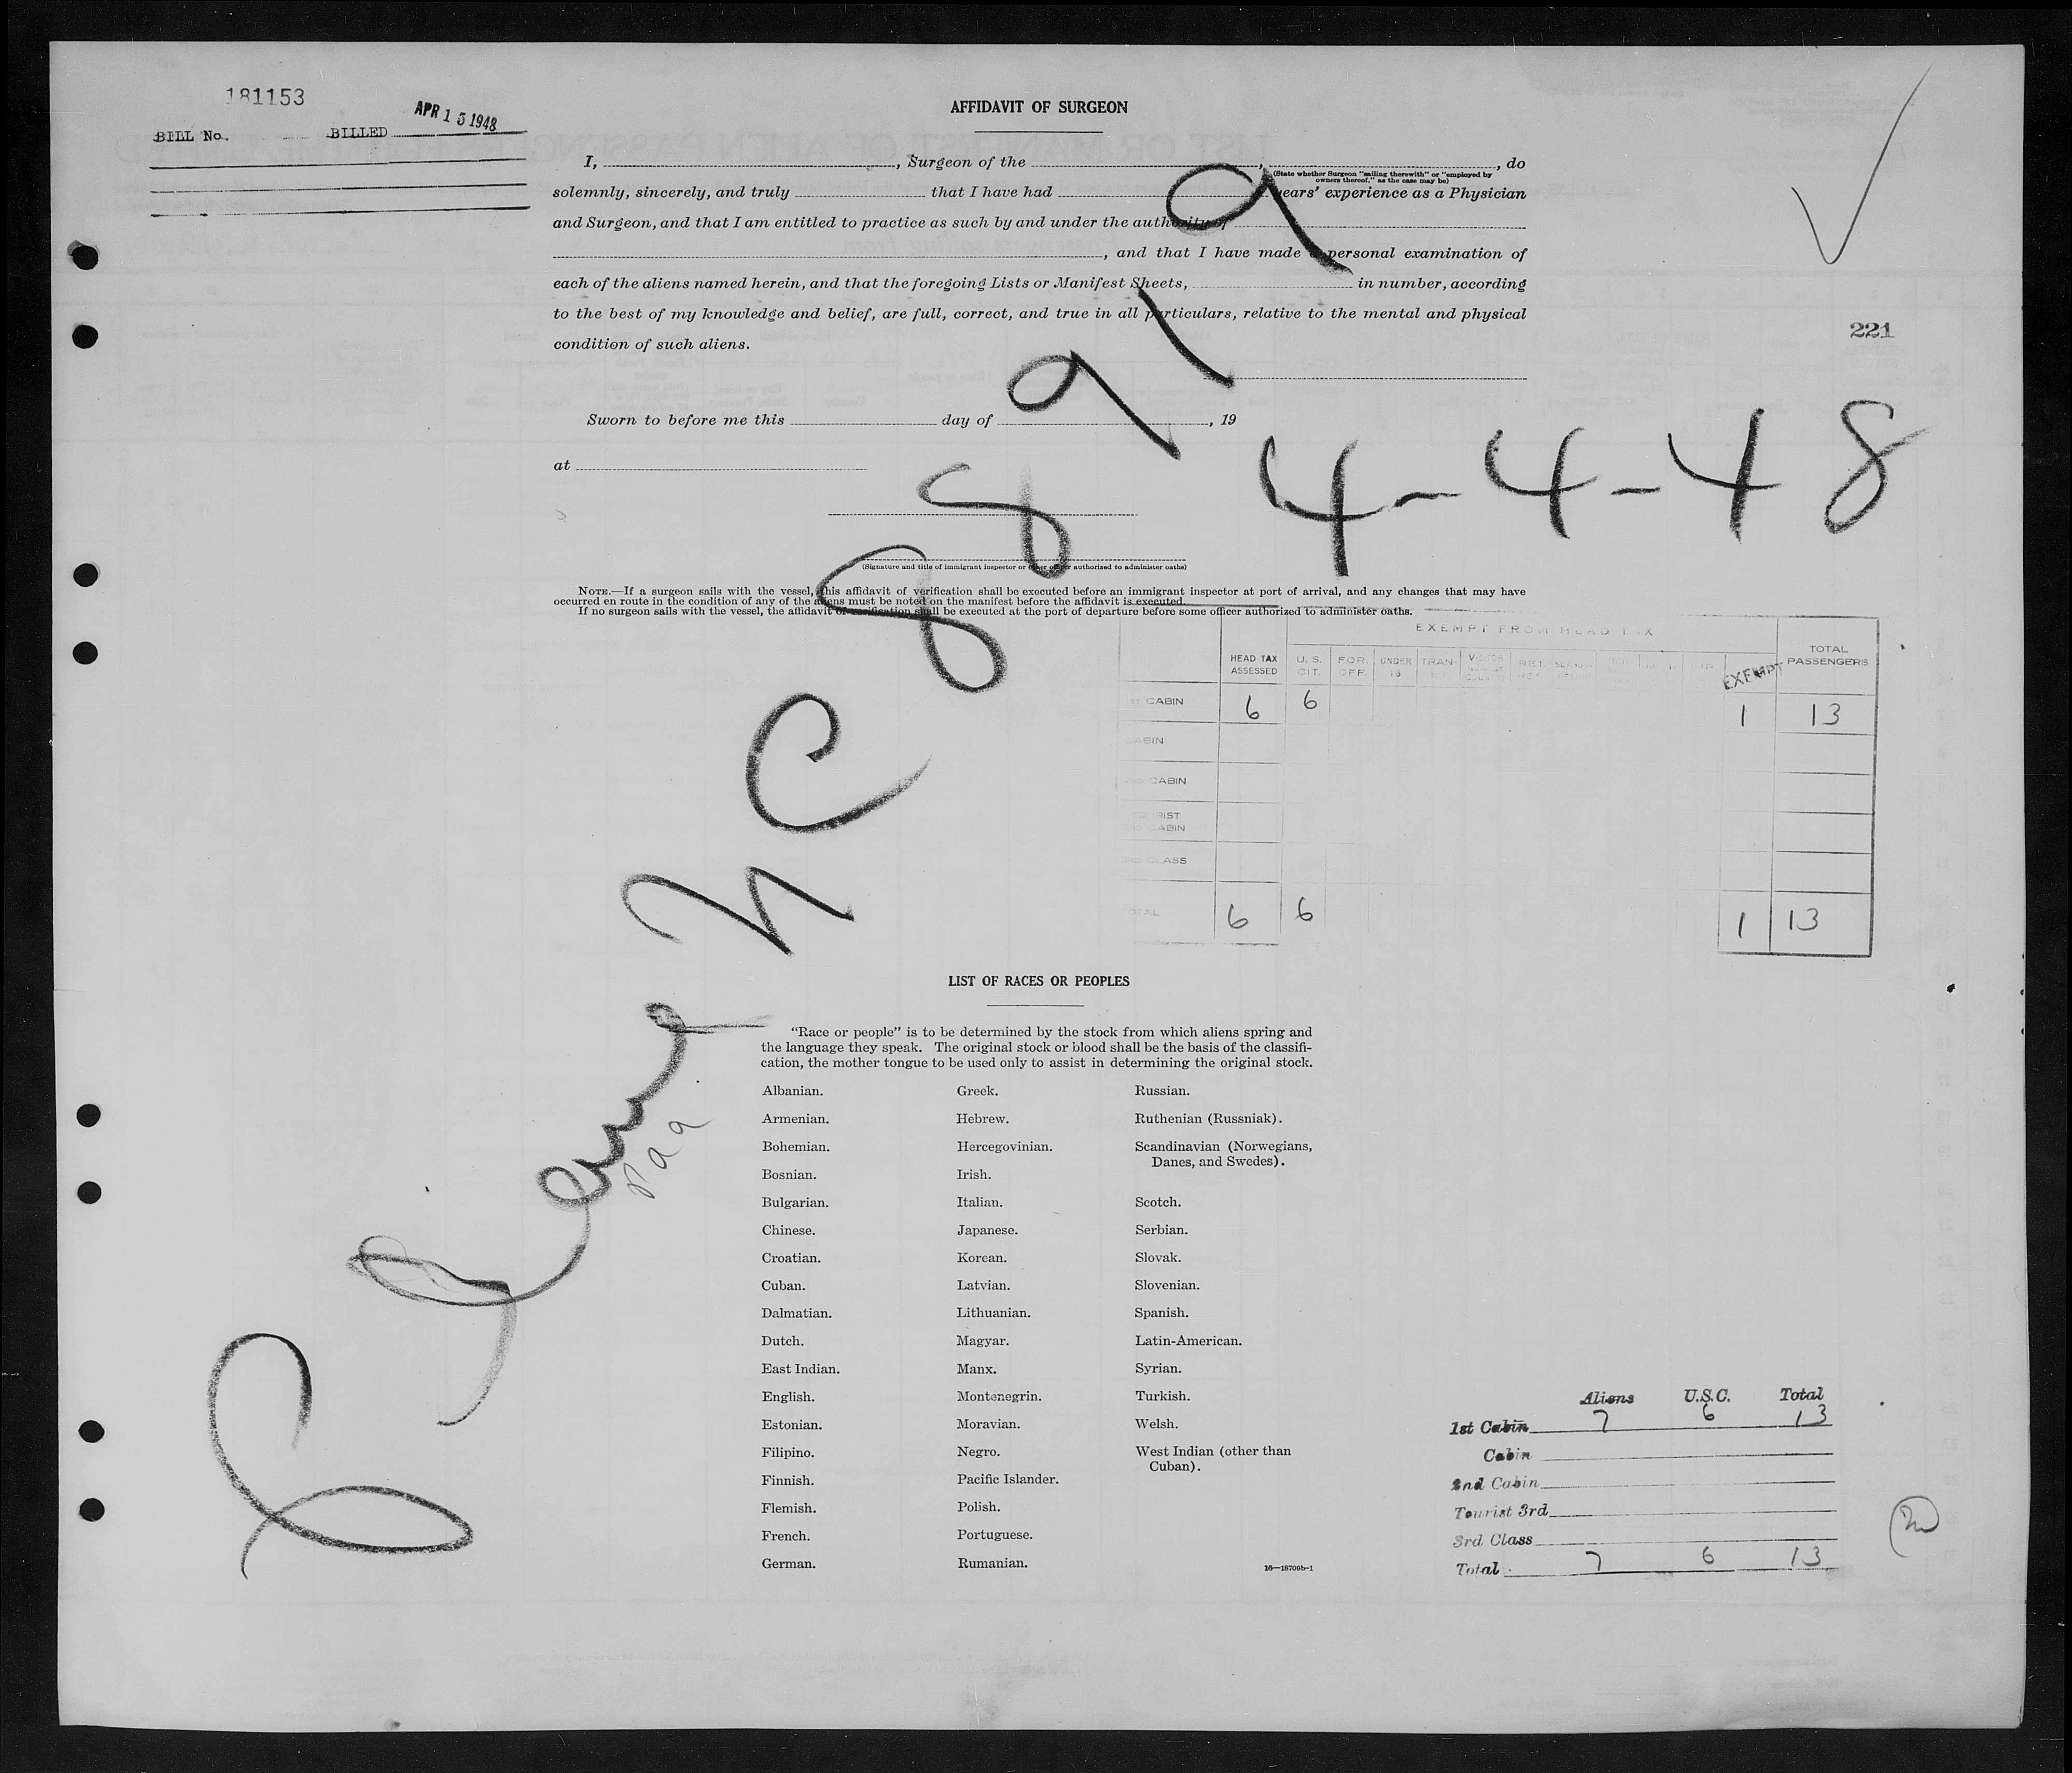 181153
BILL No. BILLED APR 15 1948
AFFIDAVIT OF SURGEON
I, , Surgeon of the , , do
(State whether Surgeon "sailing therewith" or "employed by
owners thereof," as the case may be)
solemnly, sincerely, and truly that I have had years' experience as a Physician
and Surgeon, and that I am entitled to practice as such by and under the authority of
, and that I have made a personal examination of
each of the aliens named herein, and that the foregoing Lists or Manifest Sheets, in number, according
to the best of my knowledge and belief, are full, correct, and true in all particulars, relative to the mental and physical
condition of such aliens.
221
Sworn to before me this day of , 19
at
4-4-48
(Signature and title of immigrant inspector or other officer authorized to administer oaths)
NOTE.—If a surgeon sails with the vessel, this affidavit of verification shall be executed before an immigrant inspector at port of arrival, and any changes that may have
occurred en route in the condition of any of the aliens must be noted on the manifest before the affidavit is executed.
If no surgeon sails with the vessel, the affidavit of verification shall be executed at the port of departure before some officer authorized to administer oaths.
NC 88919
Paa
EXEMPT FROM HEAD TAX
HEAD TAX ASSESSED U. S. CIT. FOR. OFF. UNDER 16 TRAN- EXEMPT TOTAL PASSENGERS
1ST CABIN 6 6 1 13
CABIN
2ND CABIN
TOURIST
CABIN
3RD CLASS
TOTAL 6 6 1 13
LIST OF RACES OR PEOPLES
"Race or people" is to be determined by the stock from which aliens spring and
the language they speak. The original stock or blood shall be the basis of the classifi-
cation, the mother tongue to be used only to assist in determining the original stock.
Albanian. Greek. Russian.
Armenian. Hebrew. Ruthenian (Russniak).
Bohemian. Hercegovinian. Scandinavian (Norwegians,
Danes, and Swedes).
Bosnian. Irish.
Bulgarian. Italian. Scotch.
Chinese. Japanese. Serbian.
Croatian. Korean. Slovak.
Cuban. Latvian. Slovenian.
Dalmatian. Lithuanian. Spanish.
Dutch. Magyar. Latin-American.
East Indian. Manx. Syrian.
English. Montenegrin. Turkish.
Estonian. Moravian. Welsh.
Filipino. Negro. West Indian (other than
Cuban).
Finnish. Pacific Islander.
Flemish. Polish.
French. Portuguese.
German. Rumanian.
16—18709b-1
Aliens U.S.C. Total
1st Cabin 7 6 13
Cabin
2nd Cabin
Tourist 3rd
3rd Class
Total 7 6 13